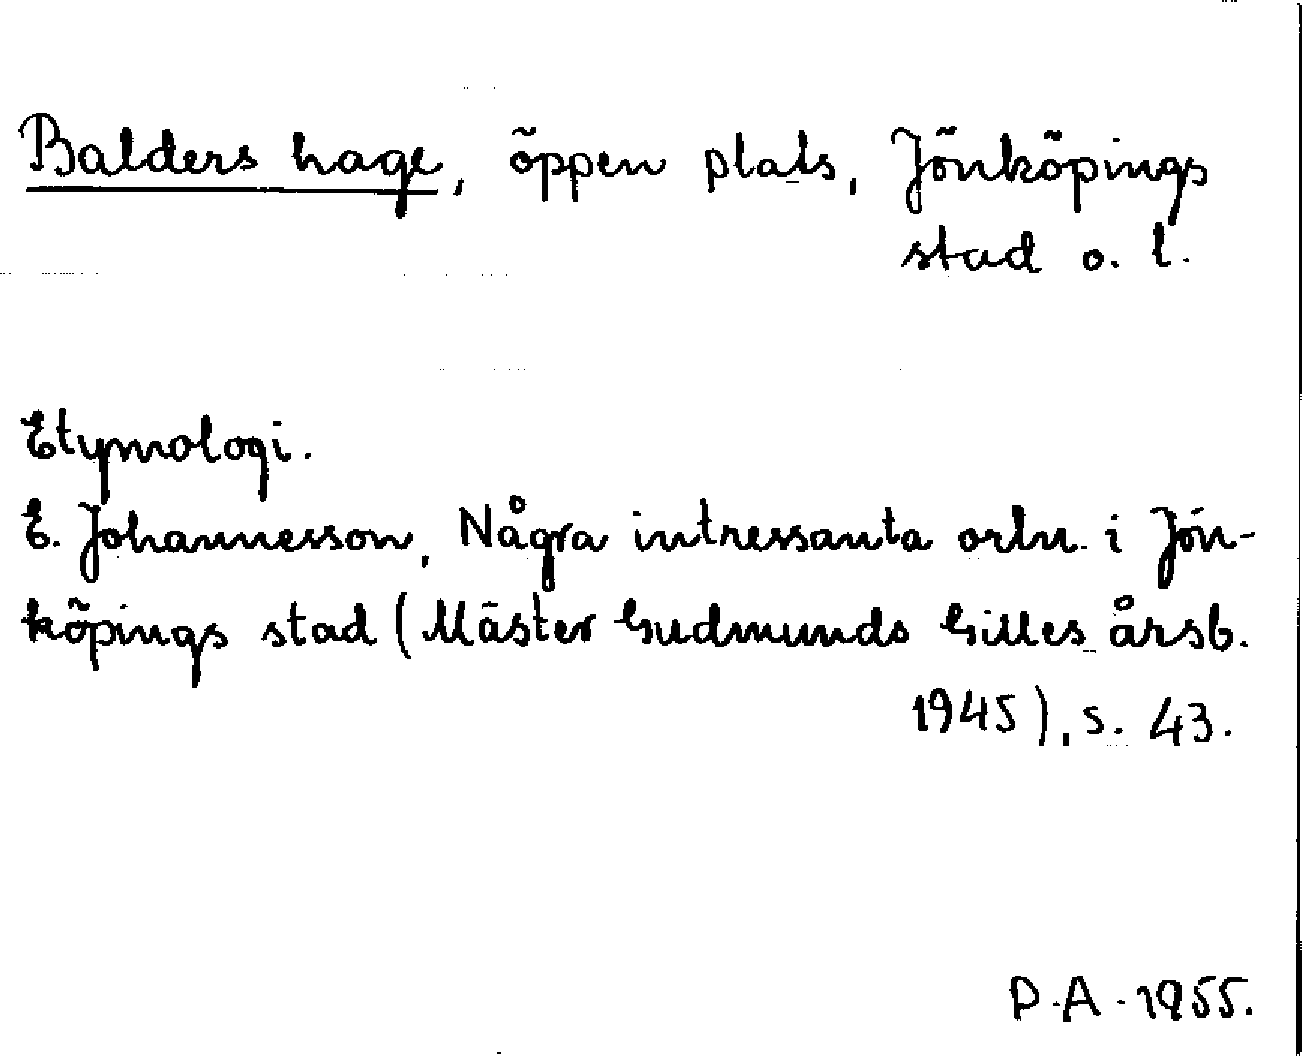 Balders hage, öppen plats, Jönköpings
stad o. l.
Etymologi.
E. Johannesson, Några intressanta ortn. i Jön-
köpings stad (Mäster Gudmunds Gilles årsb.
1945), s. 43.
P. A. 1955.